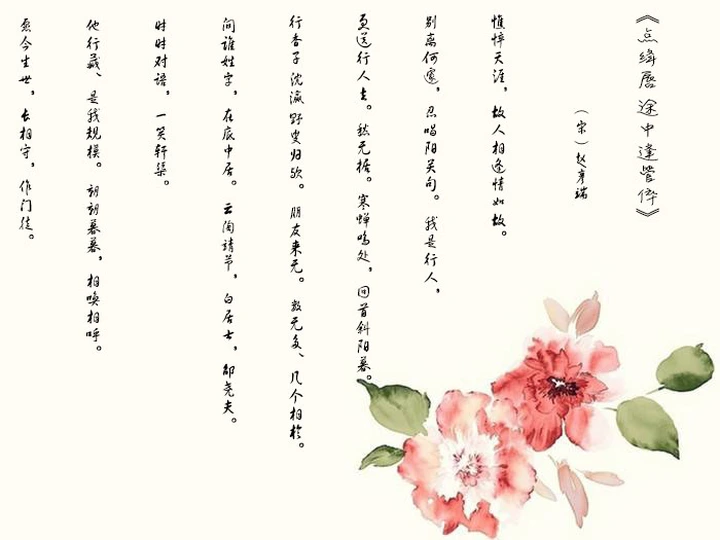 《点绛唇途中逢管倅》
（宋）赵彦端
憔悴天涯，故人相逢情如故。
别离何遽，忍唱阳关句。我是行人，
更送行人去。愁无据。寒蝉鸣处，回首斜阳暮。
行香子沈瀛野叟归欤。朋友来无。数无多、几个相於。
问谁姓字，在底中居。云陶靖节，白居士，邵尧夫。
时时对语，一笑轩渠。
他行藏、是我规模。朝朝暮暮，相唤相呼。
愿今生世，长相守，作门徒。